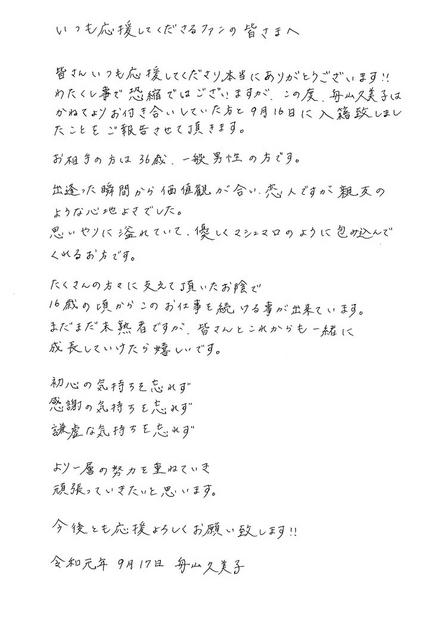 いつも応援してくださるファンの皆さまへ
皆さんいつも応援してくださり、本当にありがとうございます!!
わたくし事で恐縮ではございますが、この度、舟山久美子は
かねてよりお付き合いしていた方と9月16日に入籍致しまし
たことをご報告させて頂きます。
お相手の方は36歳、一般男性の方です。
出逢った瞬間から価値観が合い、恋人ですが親友の
ような心地よさでした。
思いやりに溢れていて、優しくマシュマロのように包み込んで
くれるお方です。
たくさんの方々に支えて頂いたお陰で
16歳の頃からこのお仕事を続ける事が出来ています。
まだまだ未熟者ですが、皆さんとこれからも一緒に
成長していけたら嬉しいです。
初心の気持ちを忘れず
感謝の気持ちを忘れず
謙虚な気持ちを忘れず
より一層の努力を重ねていき
頑張っていきたいと思います。
今後とも応援よろしくお願い致します!!
令和元年 9月17日 舟山久美子